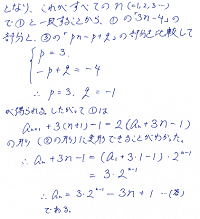 となり、これがすべての n (=1, 2, 3, …)
で①と一致することから、①の「3n-4」の
部分と、②の「pn-p+q」の部分を比較して
{ p = 3,
-p+q = -4
∴ p = 3, q = -1
が得られる。したがって①は
aₙ₊₁ + 3(n+1) - 1 = 2(aₙ + 3n - 1)
の形(②の形)に変形できることがわかった。
∴ aₙ + 3n - 1 = (a₁ + 3·1 - 1)·2ⁿ⁻¹
= 3·2ⁿ⁻¹
∴ aₙ = 3·2ⁿ⁻¹ - 3n + 1 …(答)
である。